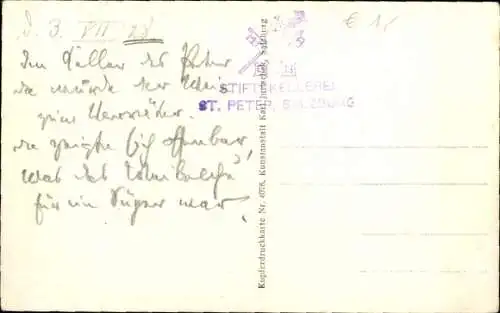 d. 3. VII 28
Im Keller des Peter
da wurde der Wein
zum Verräter.
da zeigte sich offenbar,
was das
für ein Süffer war.
€ 1,-
STIFTSKELLEREI
ST. PETER, SALZBURG
Kupferdruckkarte Nr. Kunstanstalt Karl Jurischek, Salzburg